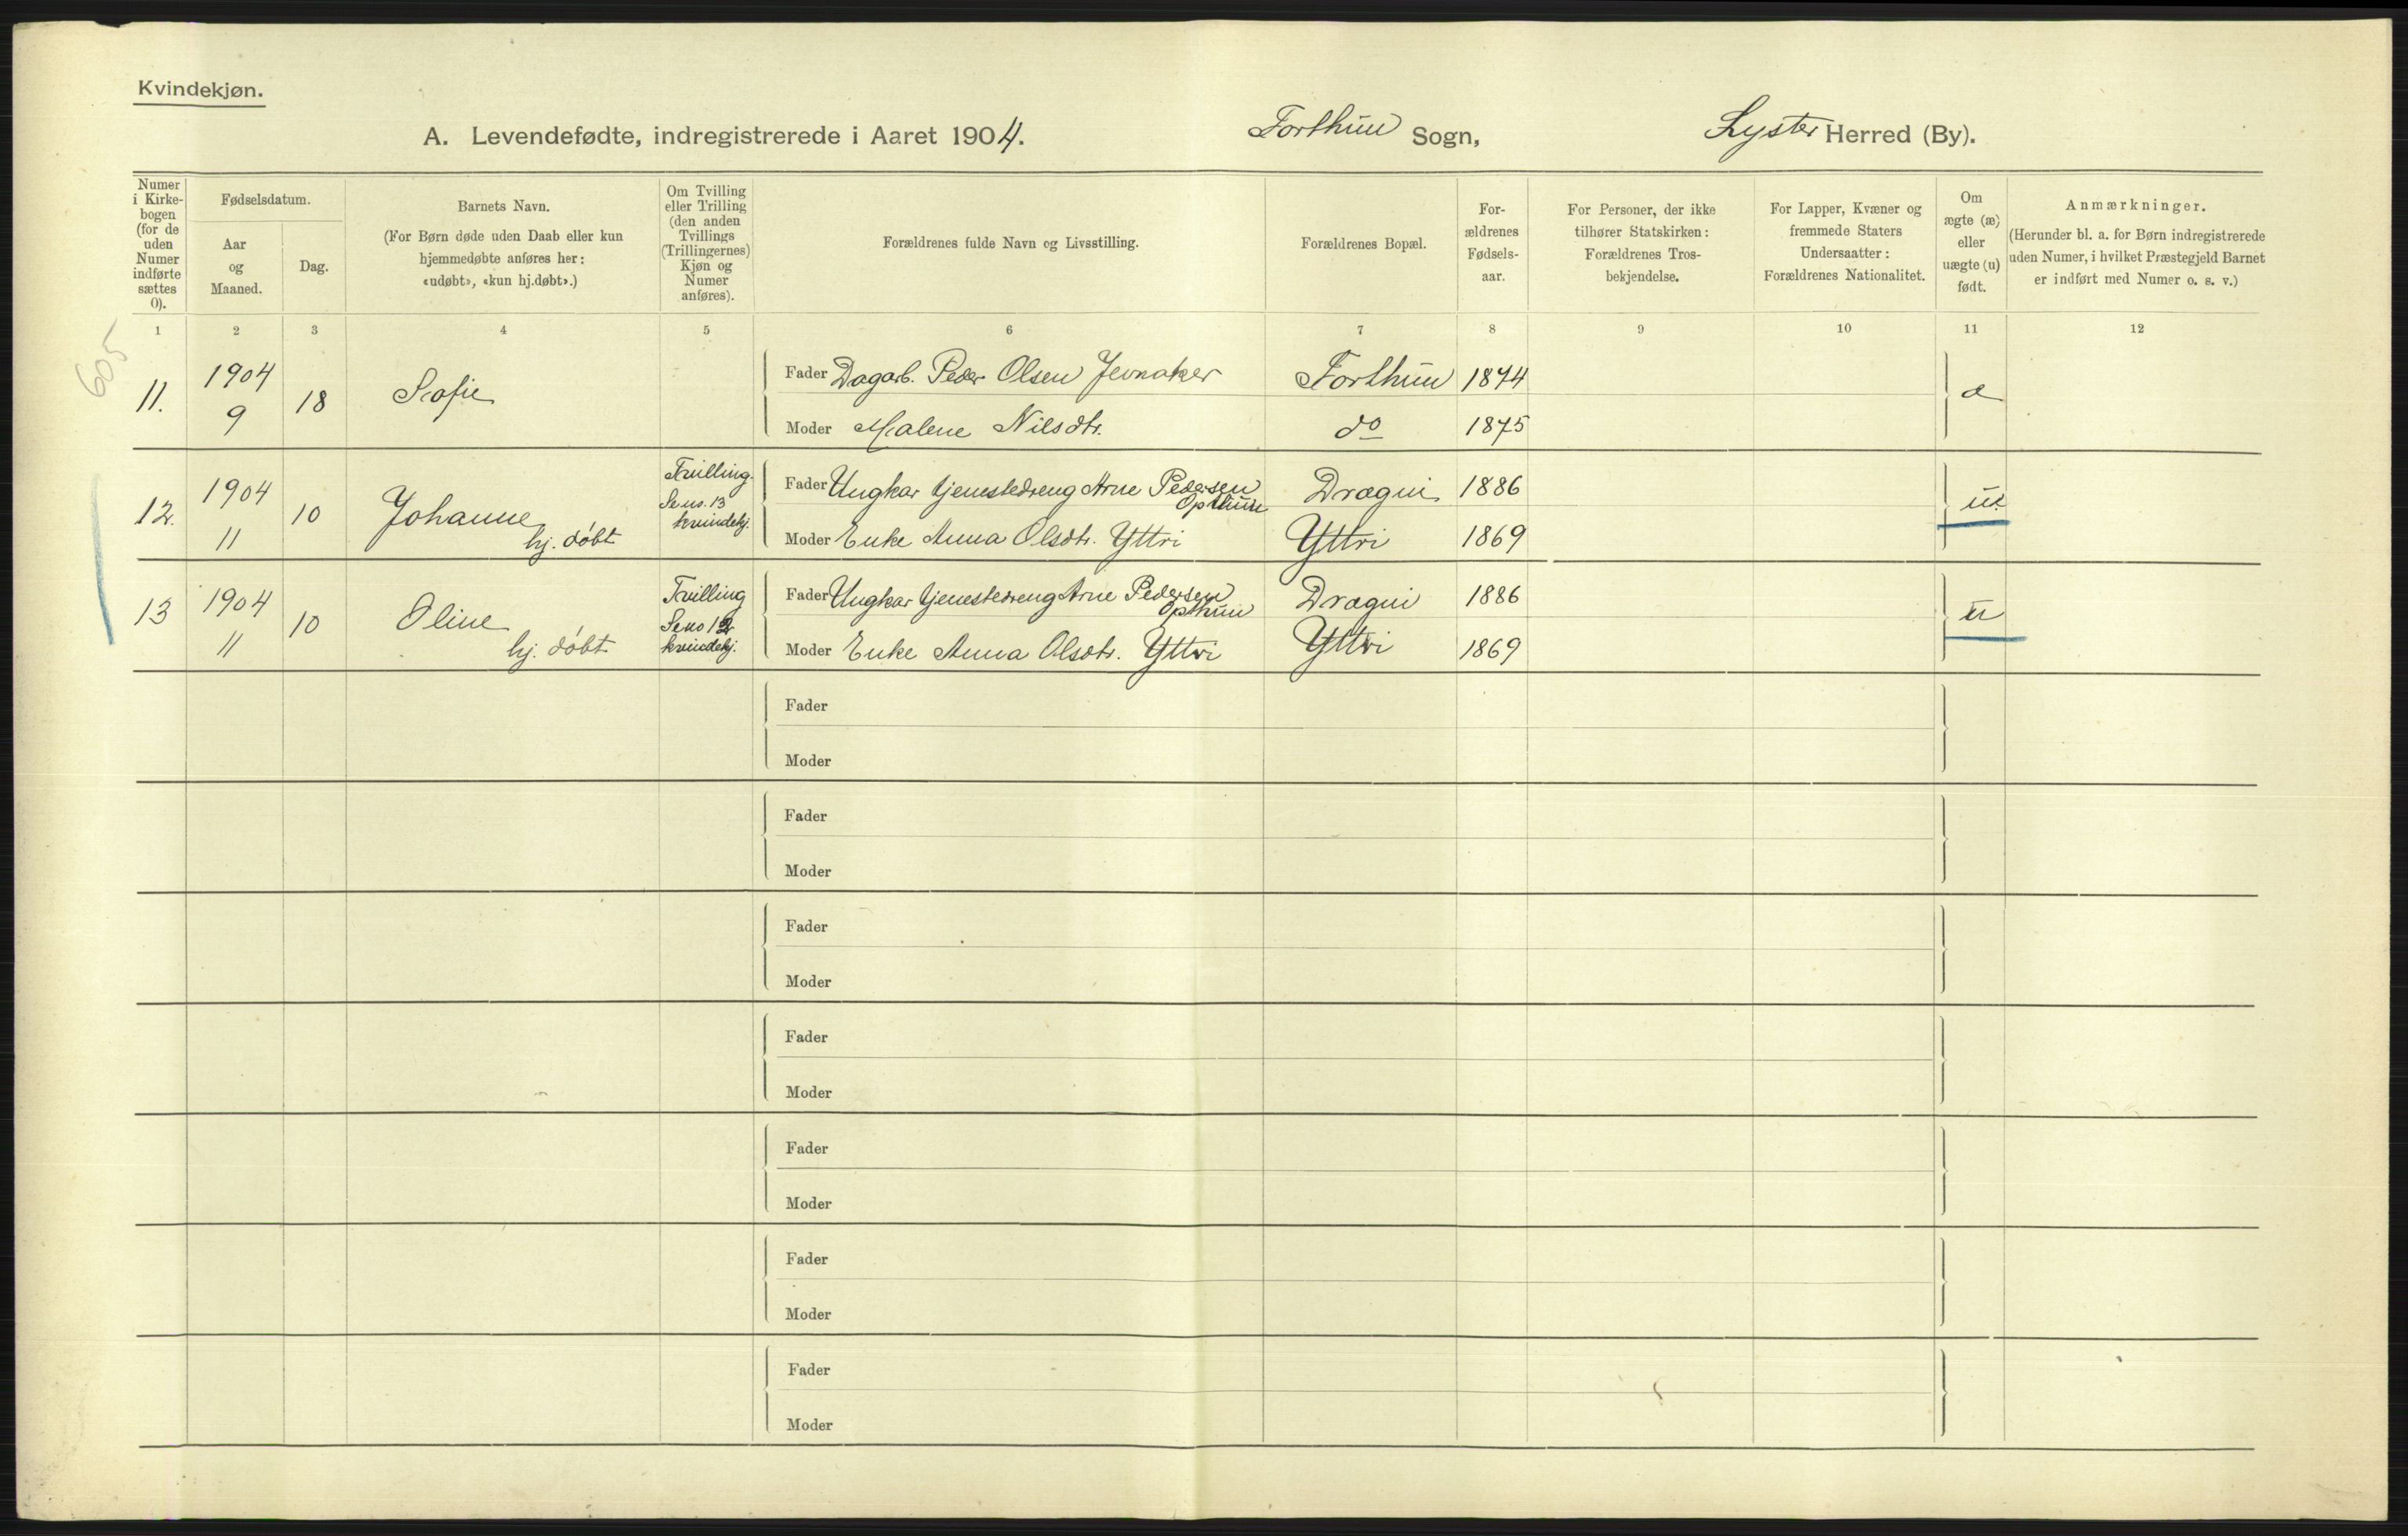 Kvindekjøn.
A. Levendefødte, indregistrerede i Aaret 1904. Forthun Sogn, Lyster Herred (By).
Numer i Kirkebogen (for de uden Numer indførte sættes 0).
Fødselsdatum.
Aar og Maaned.
Dag.
Barnets Navn.
(For Børn døde uden Daab eller kun
hjemmedøbte anføres her:
«udøbt», «kun hj.døbt».)
Om Tvilling
eller Trilling
(den anden
Tvillings
(Trillingernes)
Kjøn og
Numer
anføres).
Forældrenes fulde Navn og Livsstilling.
Forældrenes Bopæl.
For-
ældrenes
Fødsels-
aar.
For Personer, der ikke
tilhører Statskirken:
Forældrenes Tros-
bekjendelse.
For Lapper, Kvæner og
fremmede Staters
Undersaatter:
Forældrenes Nationalitet.
Om
ægte (æ)
eller
uægte (u)
født.
Anmærkninger.
(Herunder bl. a. for Børn indregistrerede
uden Numer, i hvilket Præstegjeld Barnet
er indført med Numer o. s. v.)
1 2 3 4 5 6 7 8 9 10 11 12
605
11. 1904 9 18 Sofie
Fader Dagarb. Peder Olsen Jevnaker Forthun 1874
Moder Malene Nilsdtr. do 1875
æ
12. 1904 11 10 Johanne
hj. døbt
Tvilling.
Se no. 13
kvindekj.
Fader Ungkar tjenestedreng Arne Pedersen
Opthun Drægni 1886
Moder Enke Anna Olsdtr. Yttri Yttri 1869
u.
13 1904 11 10 Oline
hj. døbt
Tvilling
Se no 12
kvindekj.
Fader Ungkar tjenestedreng Arne Pedersen
Opthun Drægni 1886
Moder Enke Anna Olsdtr. Yttri Yttri 1869
u
Fader
Moder
Fader
Moder
Fader
Moder
Fader
Moder
Fader
Moder
Fader
Moder
Fader
Moder